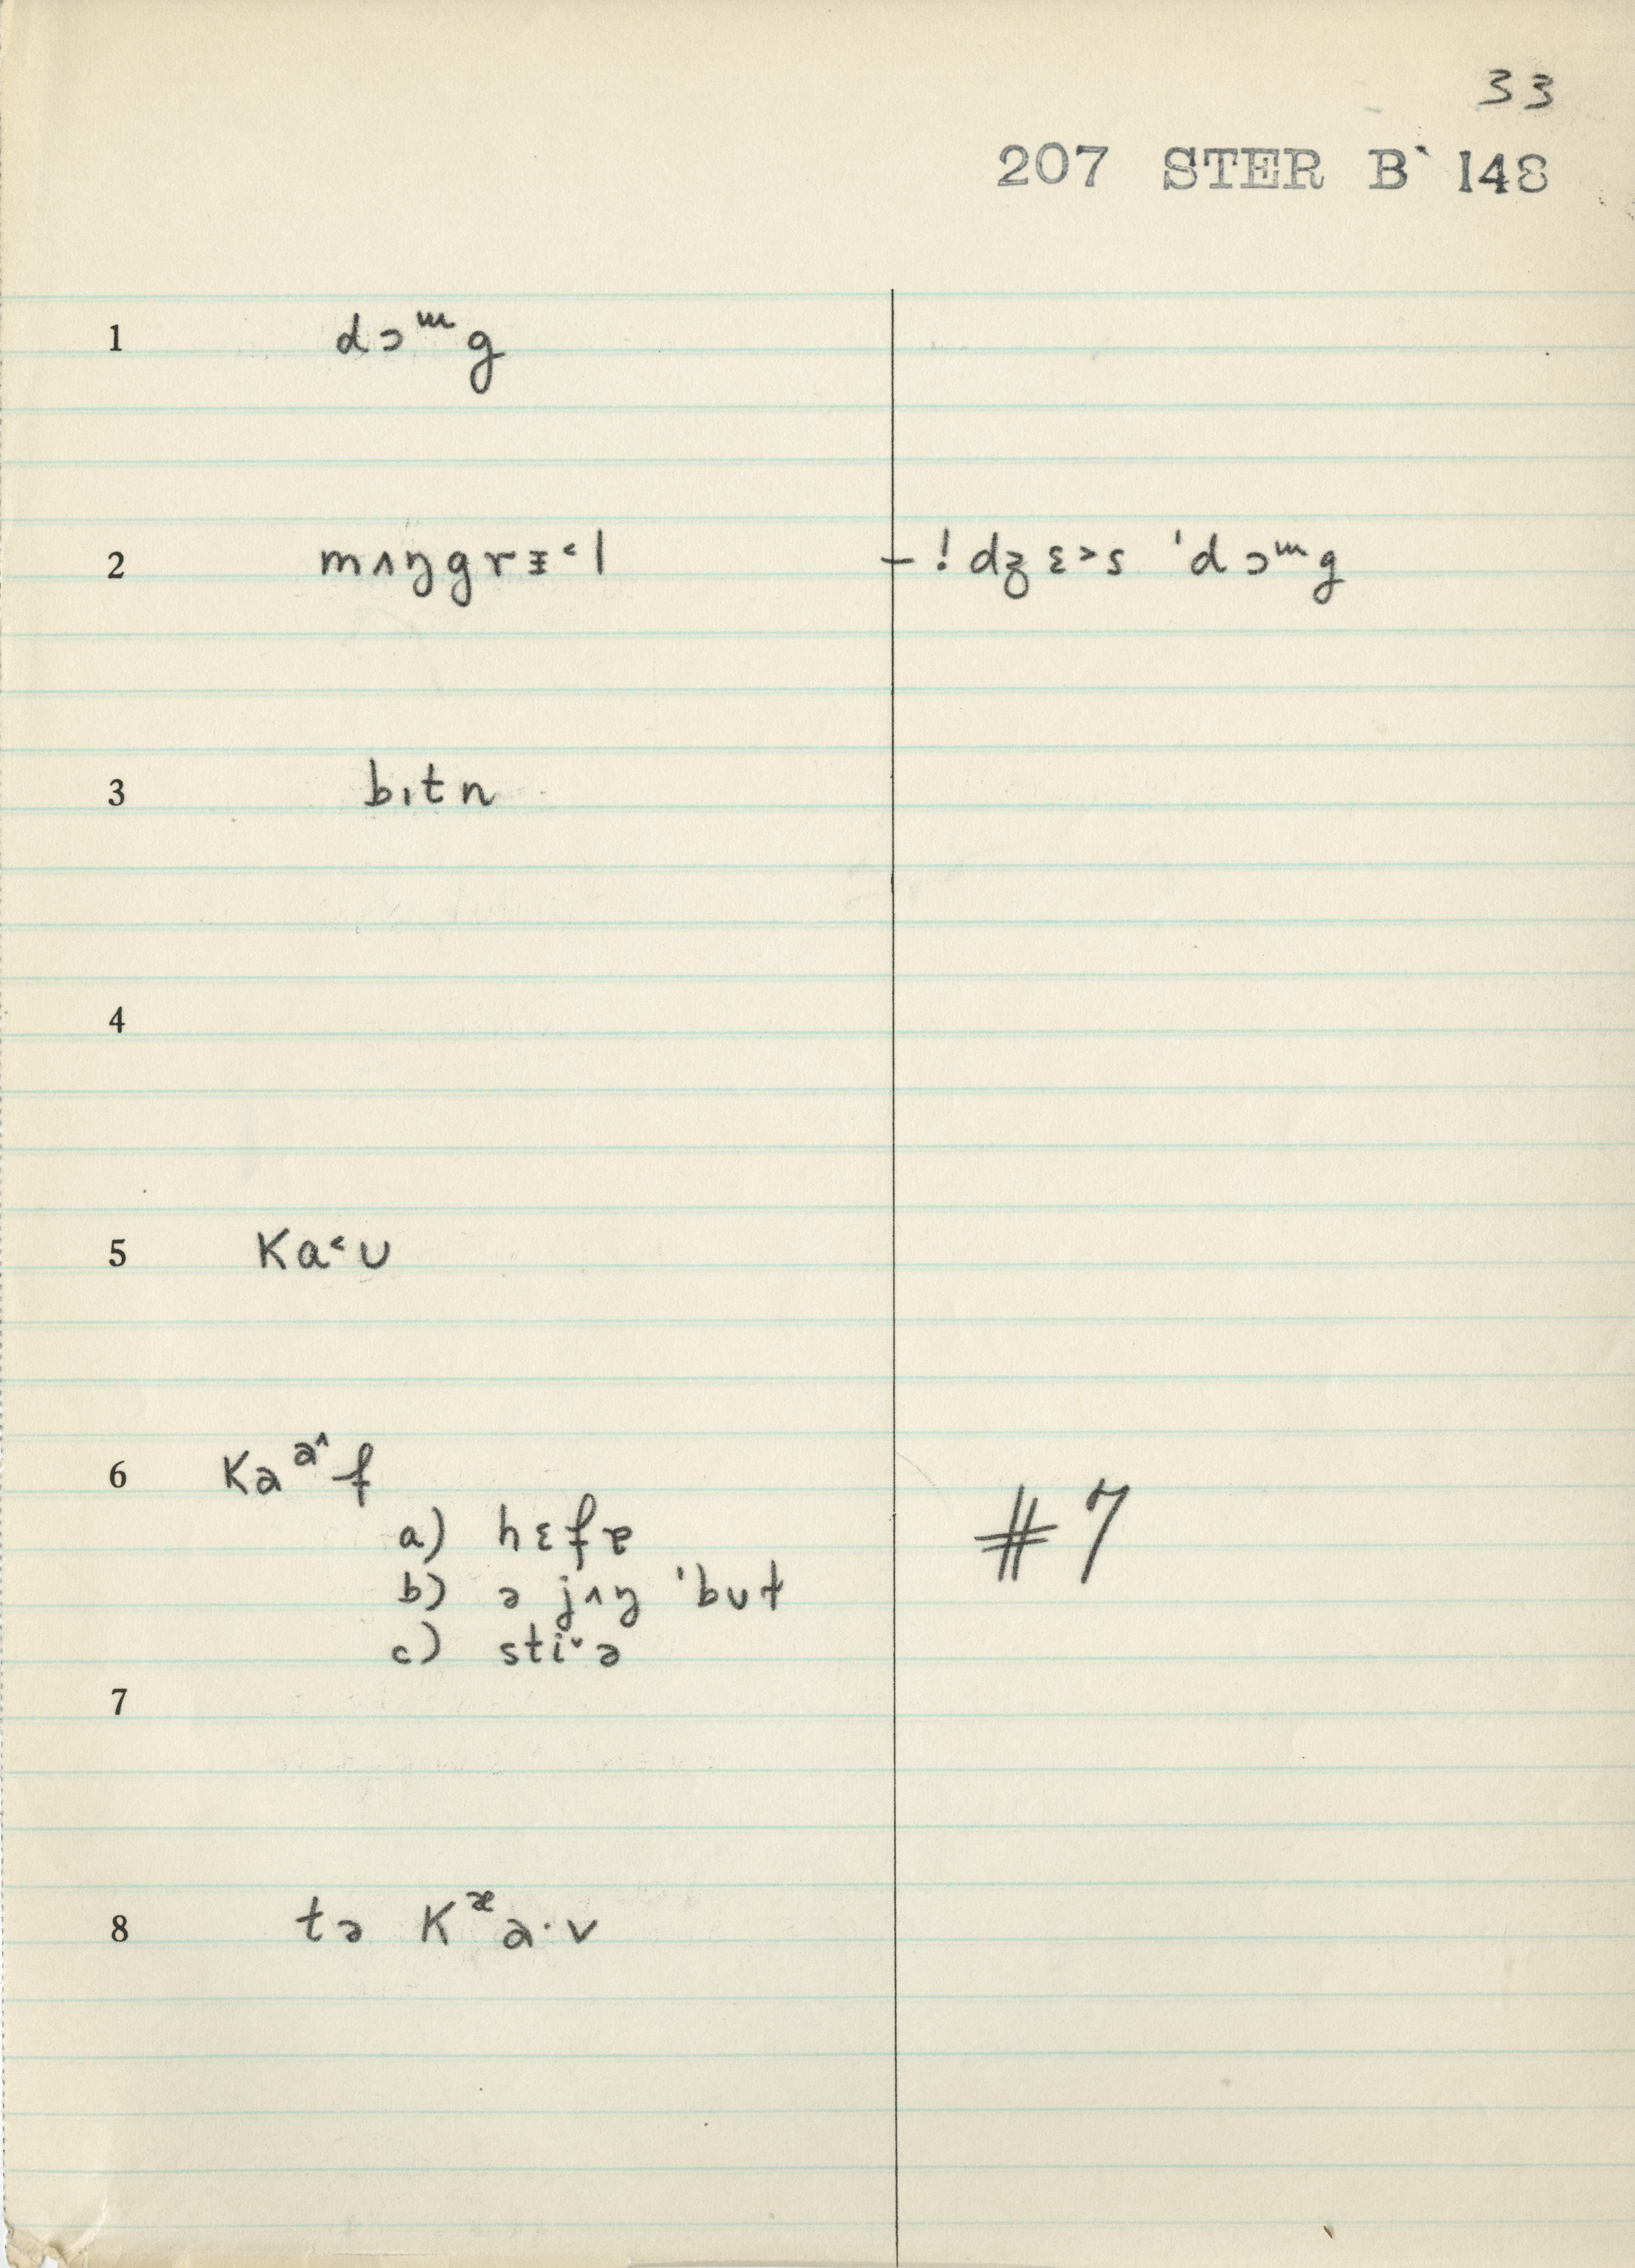 33
207 STER B 148
1 dɔᵚg
2 mʌŋgrɪ˂l –! dʒɛ˃s 'dɔᵚg
3 bɪtn
4
5 Ka˂ʊ
6 Kaᵃ^f
a) hɛfɐ #7
b) ə jʌŋ 'bʊt
c) sti˅ə
7
8 tə Kᵆa·v